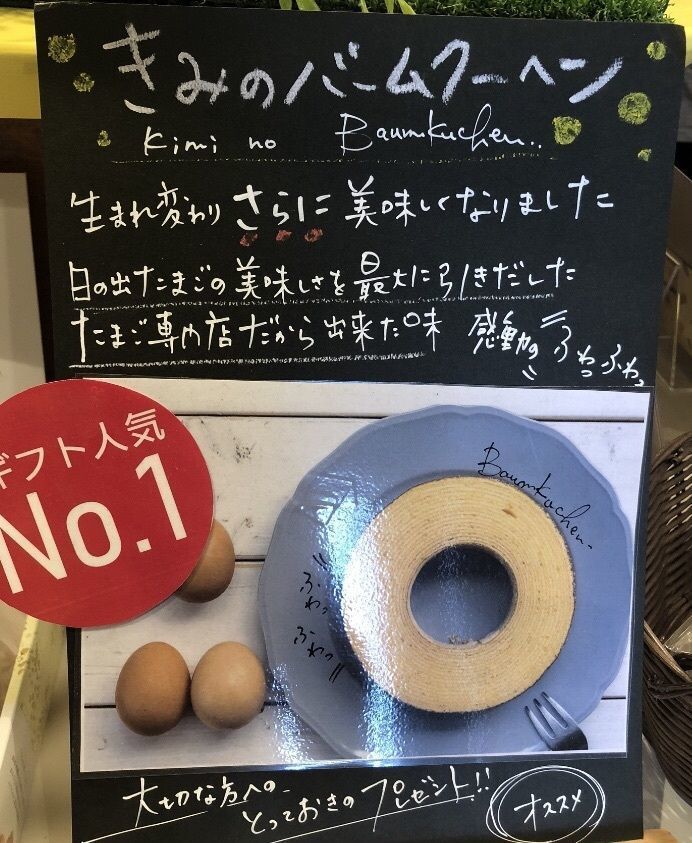 きみのバームクーヘン
Kimi no Baumkuchen..
生まれ変わり さらに 美味しくなりました
日の出たまごの美味しさを最大に引きだした
たまご専門店だから出来た味 感動の
ふわっふわっ
ギフト人気
No.1
Baumkuchen.
ふわっ
ふわっ
大切な方への
とっておきのプレゼント!!
オススメ